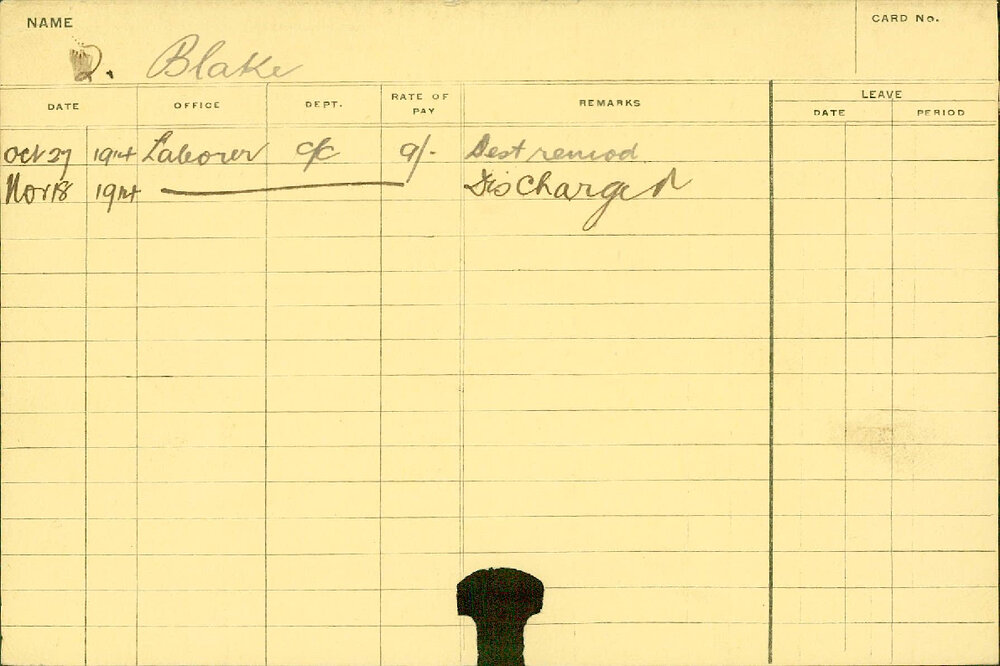 NAME
CARD No.
D. Blake
DATE OFFICE DEPT. RATE OF PAY REMARKS LEAVE
DATE PERIOD
Oct 27 1914 Laborer c/c 9/- Dest
Nov 18 1914 Discharged